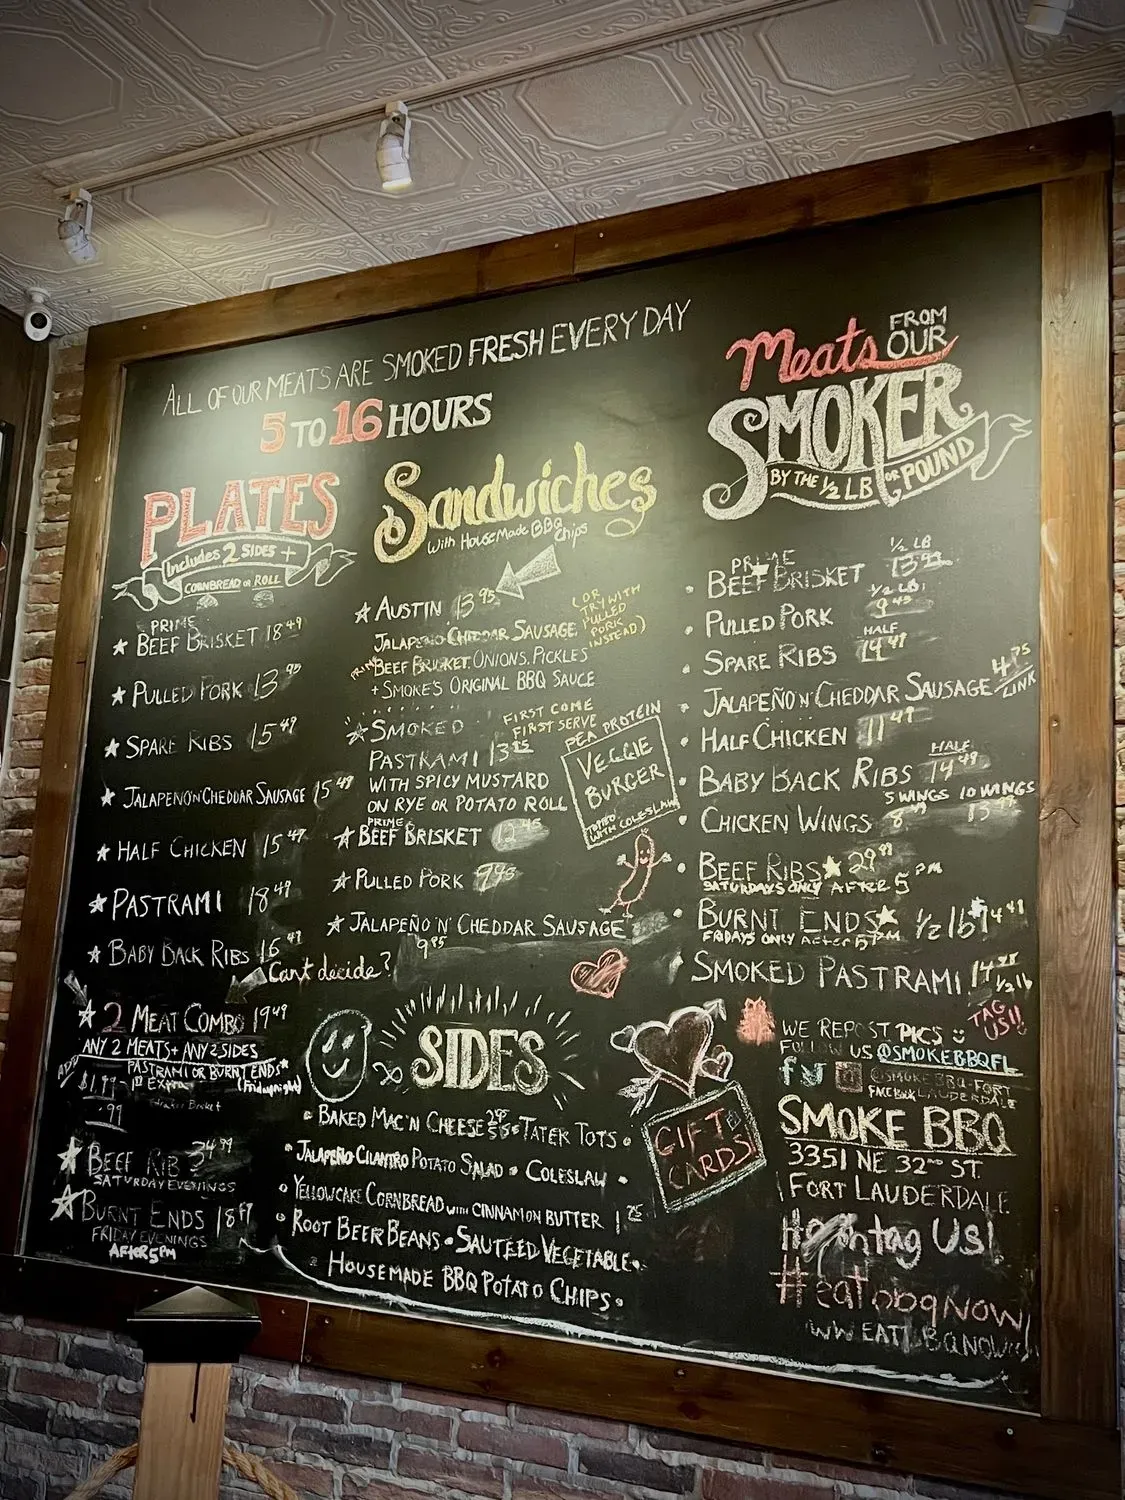 ALL OF OUR MEATS ARE SMOKED FRESH EVERY DAY
5 TO 16 HOURS
PLATES
Includes 2 SIDES +
CORNBREAD OR ROLL
PRIME
★ BEEF BRISKET 18 49
★ PULLED PORK 13 95
★ SPARE RIBS 15 49
★ JALAPENO'N'CHEDDAR SAUSAGE 15 49
★ HALF CHICKEN 15 47
★ PASTRAMI 18 49
★ BABY BACK RIBS 16 47
Can't decide?
★ 2 MEAT COMBO 19 49
ANY 2 MEATS + ANY 2 SIDES
PASTRAMI OR BURNT ENDS*
ADD $1.99
(Friday night)
.99
★ BEEF RIB 34 99
SATURDAY EVENINGS
★ BURNT ENDS 18
FRIDAY EVENINGS
AFTER 5PM
Sandwiches
with HouseMade BBQ Chips
★ AUSTIN 13 95
(OR TRY WITH PULLED PORK INSTEAD)
JALAPENO CHEDDAR SAUSAGE
PRIME BEEF BRISKET, ONIONS, PICKLES
+ SMOKE'S ORIGINAL BBQ SAUCE
★ SMOKED
FIRST COME
FIRST SERVE
PASTRAMI 13
WITH SPICY MUSTARD
ON RYE OR POTATO ROLL
PEA PROTEIN
VEGGIE
BURGER
TOPPED WITH COLESLAW
PRIME
★ BEEF BRISKET 12 45
★ PULLED PORK 9 95
★ JALAPEÑO 'N' CHEDDAR SAUSAGE
9 95
SIDES
• BAKED MAC'N CHEESE • TATER TOTS •
• JALAPEÑO CILANTRO POTATO SALAD • COLESLAW •
• YELLOWCAKE CORNBREAD WITH CINNAMON BUTTER 1 25
• ROOT BEER BEANS • SAUTEED VEGETABLE •
HOUSEMADE BBQ POTATO CHIPS •
GIFT CARDS
Meats FROM OUR
SMOKER
BY THE 1/2 LB OR POUND
PRIME
• BEEF BRISKET 1/2 LB 13 95
• PULLED PORK 1/2 LB 9 45
• SPARE RIBS HALF 14 47
• JALAPEÑO N' CHEDDAR SAUSAGE 4 75 LINK
• HALF CHICKEN 11 49
• BABY BACK RIBS HALF 14 49
• CHICKEN WINGS 5 WINGS 8 49 10 WINGS 13 99
• BEEF RIBS ★ 29 99
SATURDAYS ONLY AFTER 5 PM
• BURNT ENDS ★ 1/2 lb 14 49
FRIDAYS ONLY AFTER 5PM
• SMOKED PASTRAMI 14 1/2 lb
TAG US!!
WE REPOST PICS
FOLLOW US @SMOKEBBQFL
@SMOKEBBQ-FORT
FACEBOOK LAUDERDALE
SMOKE BBQ
3351 NE 32ND ST.
FORT LAUDERDALE
#Hashtag US!
#eatbbqNOW
WWW.EATBBQNOW